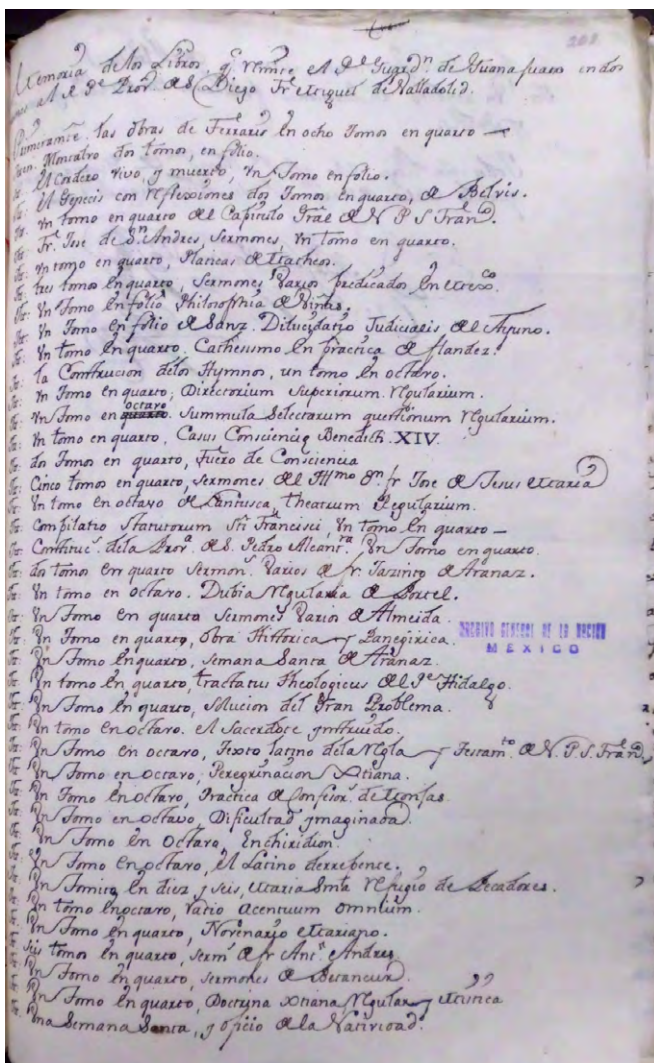 201
Memoria de los Libros q.e remite el P.e Guard.n de Guanajuato en dos
al R. P.e Prov. de S. Diego Fr. Miguel de Valladolid.
Primeramte. las obras de Ferraris en ocho Tomos en quarto
Moncalvo dos tomos, en folio.
It: El Cordero vivo, y muerto, un Tomo en folio.
It: El Genecis con reflexiones dos Tomos en quarto, de Belvis.
It: Un tomo en quarto del Capitulo Gral de N P S Fran.
It: Fr. Jose de Sn. Andres, Sermones, un tomo en quarto.
It: un tomo en quarto, Platicas de Macheon.
It: tres tomos en quarto, Sermones varios predicados en Mexco.
It: Un Tomo en folio Philosophia de
It: Un Tomo en folio de Sanz. Dilucidatio Judicialis del Ayuno.
It: Un tomo en quarto, Cathesismo en practica de Flandez.
It: la Construcion delos Hymnos, un tomo en octavo.
It: un Tomo en quarto; Directorium Superiorum Regularium.
It: un Tomo en quarto octavo. Summula Selectarum questionum Regularium.
It: Un tomo en quarto, Casus Conscienciæ Benedict. XIV.
It: dos Tomos en quarto, Fuero de Consciencia
It: Cinco tomos en quarto, sermones del Illmo Sn. fr Jose de Jesus Maria
It: Un tomo en octavo de Lantusca, Theatrum Regularium.
It: Compilatio Statutorum Sti Francisci, Un tomo en quarto
It: Constituc.s dela Prov.a de S. Pedro Alcant.ra Un Tomo en quarto.
It: dos tomos en quarto Sermon.s Varios de fr. Jazinto de Aranaz.
It: Un tomo en octavo. Dubia Regularia de Portel.
It: Un Tomo en quarto Sermones Varios de Almeida.
It: Un Tomo en quarto, Obra Historica y Panegirica.
ARCHIVO GENERAL DE LA NACION
MEXICO
It: Un Tomo en quarto, Semana Santa de Aranaz.
It: Un tomo en quarto, tractatus Theologicus del P.e Hidalgo.
It: Un Tomo en quarto, Solucion del Gran Problema.
It: Un tomo en octavo. el Sacerdote instruido.
It: Un Tomo en octavo, Texto latino dela Regla y Testam.to de N. P. S. Fran.
It: Un Tomo en octavo, Peregrinacion Xtiana.
It: Un Tomo en octavo, Practica de Confesor. de Monjas.
It: Un Tomo en octavo, Dificultad ymaginada.
It: Un Tomo en Octavo, Enchiridion.
It: Un Tomo en octavo, el Latino derrepente.
It: Un Tomito en diez y seis, Maria Sma Refugio de Pecadores.
It: Un tomo en octavo, ratio acentuum omnium.
It: Un Tomo en quarto, Novenario Mariano.
It: Seis tomos en quarto, serm.s de fr Ant.o Andres
It: Un Tomo en quarto, sermones de Betancur.
It: Un Tomo en quarto, Doctrina Xtiana Regular y Mistica
It: Una Semana Santa, y oficio de la Natividad.